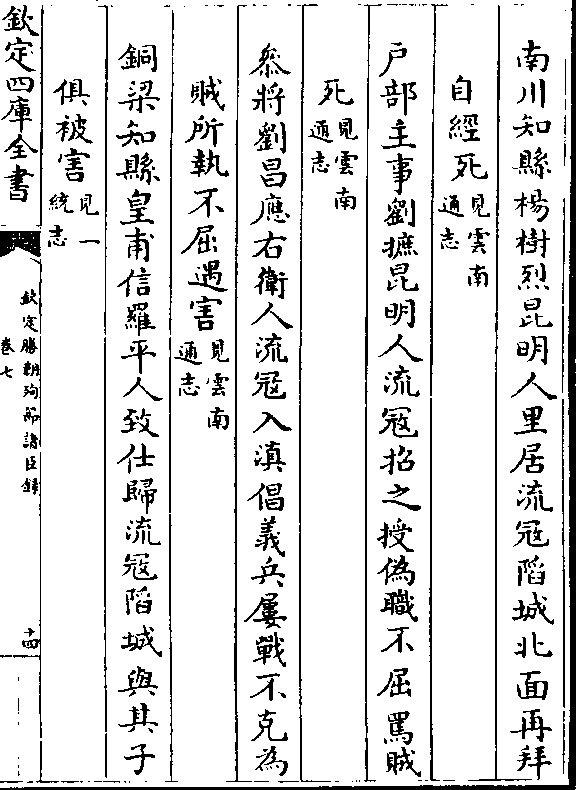 南川知縣楊樹烈昆明人里居流冦䧟城北面再拜
自經死見雲南通志
戶部主事劉摭昆明人流冦招之授偽職不屈罵賊
死見雲南通志
叅將劉昌應右衛人流冦入滇倡義兵屢戰不克為
賊所執不屈遇害見雲南通志
銅梁知縣皇甫信羅平人致仕歸流冦䧟城與其子
俱被害見一統志
欽定四庫全書
欽定勝朝殉節諸臣錄
卷七
十四